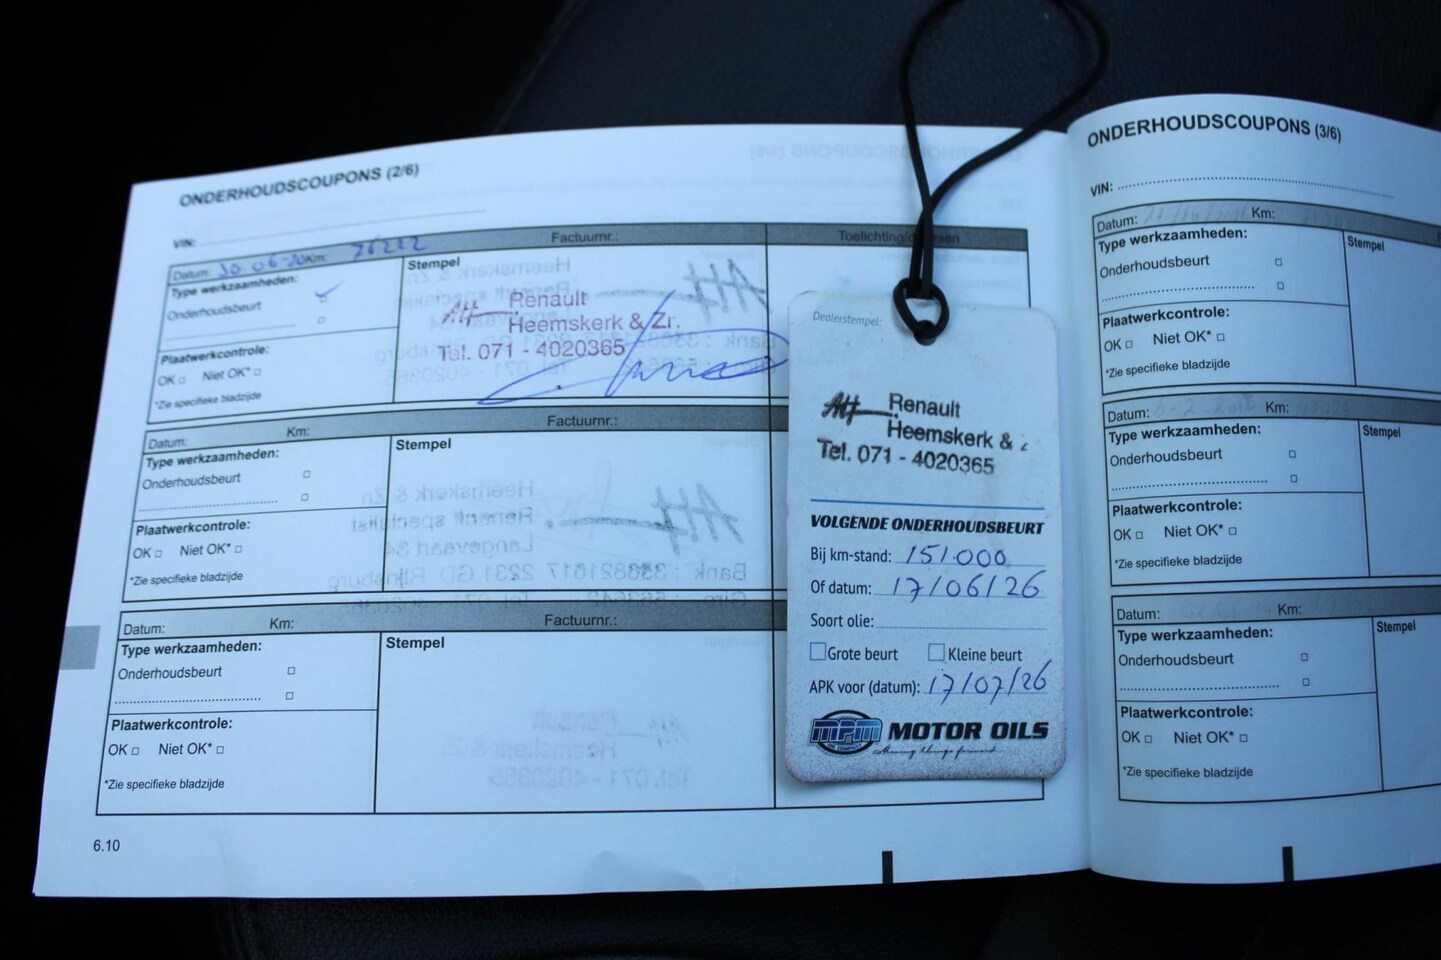 ONDERHOUDSCOUPONS (2/6)
VIN:
Datum: 30-06-20 Km: 76222 Factuurnr.:
Type werkzaamheden:
Onderhoudsbeurt
Plaatwerkcontrole:
OK Niet OK*
*Zie specifieke bladzijde
Stempel
Renault
Heemskerk & Zr.
Tel. 071 - 4020365
Datum: Km: Factuurnr.:
Type werkzaamheden:
Onderhoudsbeurt
Plaatwerkcontrole:
OK Niet OK*
*Zie specifieke bladzijde
Stempel
Datum: Km: Factuurnr.:
Type werkzaamheden:
Onderhoudsbeurt
Plaatwerkcontrole:
OK Niet OK*
*Zie specifieke bladzijde
Stempel
6.10
Dealerstempel:
Renault
Heemskerk &
Tel. 071 - 4020365
VOLGENDE ONDERHOUDSBEURT
Bij km-stand: 151.000
Of datum: 17/06/26
Soort olie:
Grote beurt Kleine beurt
APK voor (datum): 17/07/26
MPM MOTOR OILS
ONDERHOUDSCOUPONS (3/6)
VIN:
Datum: Km:
Type werkzaamheden:
Onderhoudsbeurt
Plaatwerkcontrole:
OK Niet OK*
*Zie specifieke bladzijde
Stempel
Datum: Km:
Type werkzaamheden:
Onderhoudsbeurt
Plaatwerkcontrole:
OK Niet OK*
*Zie specifieke bladzijde
Stempel
Datum: Km:
Type werkzaamheden:
Onderhoudsbeurt
Plaatwerkcontrole:
OK Niet OK*
*Zie specifieke bladzijde
Stempel